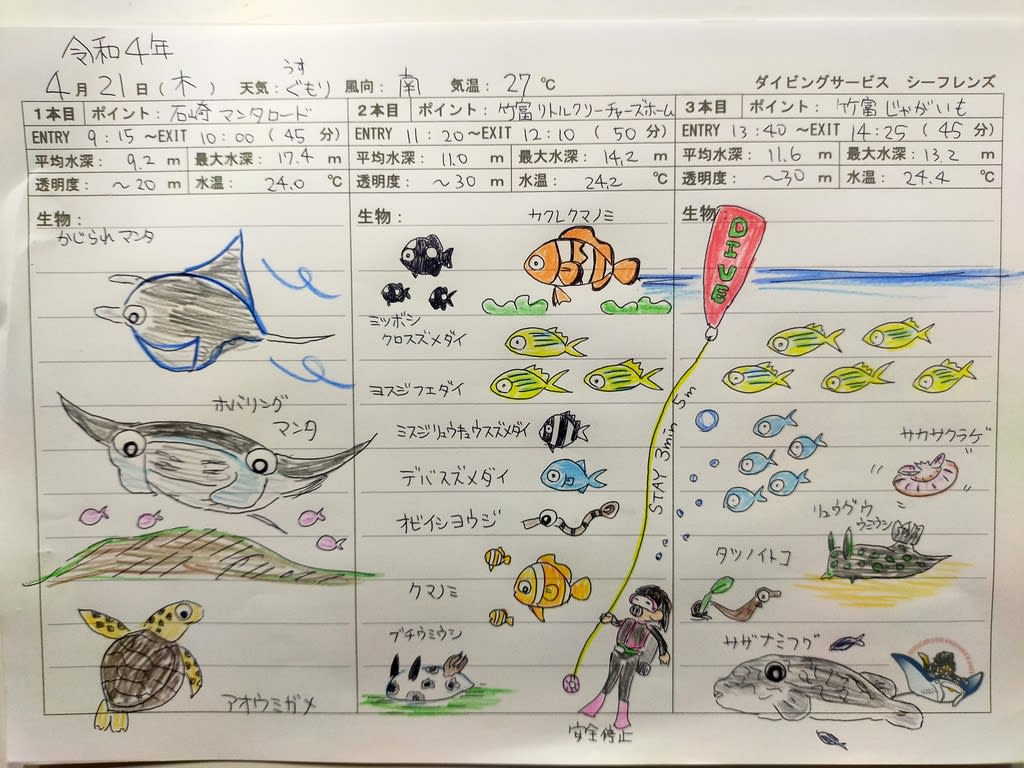 令和4年
4月21日(木) 天気:うすぐもり 風向:南 気温:27℃
ダイビングサービス シーフレンズ
1本目 ポイント:石崎 マンタロード
ENTRY 9:15~EXIT 10:00(45分)
平均水深:9.2m 最大水深:17.4m
透明度:~20m 水温:24.0℃
生物:
かじられマンタ
ホバリング
マンタ
アオウミガメ
2本目 ポイント:竹富リトルクリーチャーズホーム
ENTRY 11:20~EXIT 12:10(50分)
平均水深:11.0m 最大水深:14.2m
透明度:~30m 水温:24.2℃
生物:
カクレクマノミ
ミツボシ
クロスズメダイ
ヨスジフエダイ
ミスジリュウキュウスズメダイ
デバスズメダイ
オビイシヨウジ
クマノミ
ブチウミウシ
安全停止
3本目 ポイント:竹富じゃがいも
ENTRY 13:40~EXIT 14:25(45分)
平均水深:11.6m 最大水深:13.2m
透明度:~30m 水温:24.4℃
生物
DIVE
STAY 3min 5m
サカサクラゲ
リュウグウ
ウミウシ
タツノイトコ
サザナミフグ